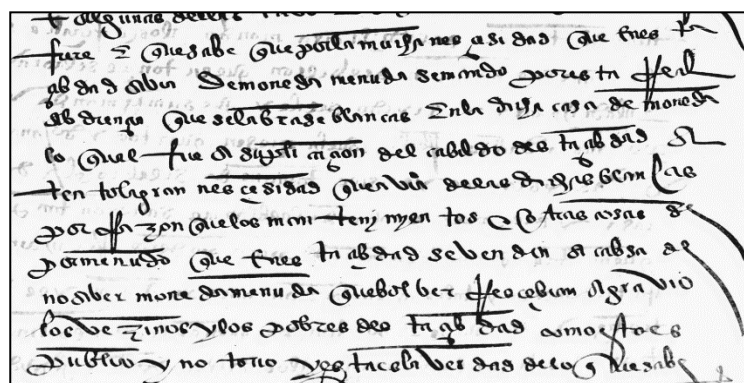 algunas dellas
fuere e que sabe que por la mucha nesçesidad que en esta
çibdad abia de moneda menuda se mando por esta Real
abdiençia que se labrase blancas en la dicha casa de moneda
lo qual fue a suplicaçion del cabildo desta çibdad at
tenta la gran nesçesidad que avia de las dichas blancas
por Razon que los mantenimyentos e otras cosas de
por menudo que en esta çibdad se venden a cabsa de
no aber moneda menuda que bolber Reçebian agravio
los vezinos y los pobres desta çibdad como esto es
publico y notorio y esta es la verdad de lo que sabe